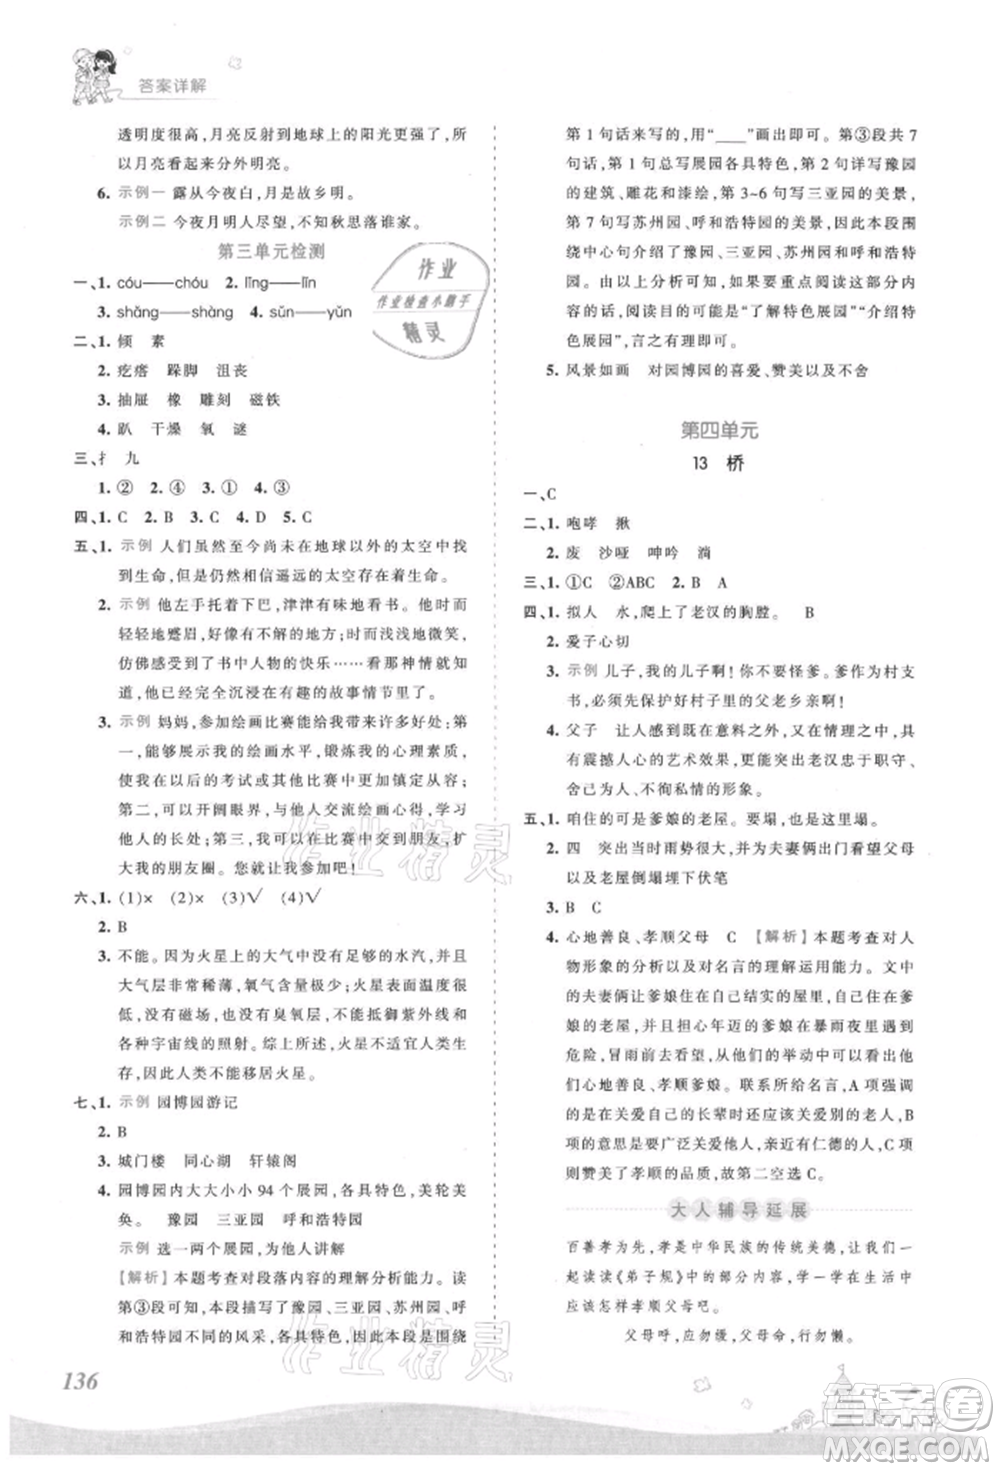 答案详解
透明度很高,月亮反射到地球上的阳光更强了,所
以月亮看起来分外明亮。
6. 示例一 露从今夜白,月是故乡明。
示例二 今夜月明人尽望,不知秋思落谁家。
第三单元检测
一、1. cóu——chóu 2. līng——līn
3. shǎng——shàng 4. sǔn——yǔn
二、1. 倾 素
2. 疙瘩 跺脚 沮丧
3. 抽屉 橡 雕刻 磁铁
4. 趴 干燥 氧 谜
三、扌 九
1. ② 2. ④ 3. ① 4. ③
四、1. C 2. B 3. C 4. D 5. C
五、1. 示例 人们虽然至今尚未在地球以外的太空中找
到生命,但是仍然相信遥远的太空存在着生命。
2. 示例 他左手托着下巴,津津有味地看书。他时而
轻轻地蹙眉,好像有不解的地方;时而浅浅地微笑,
仿佛感受到了书中人物的快乐……看那神情就知
道,他已经完全沉浸在有趣的故事情节里了。
3. 示例 妈妈,参加绘画比赛能给我带来许多好处:第
一,能够展示我的绘画水平,锻炼我的心理素质,使
我在以后的考试或者比赛中更加镇定从容;
第二,可以开阔眼界,与他人交流绘画心得,学习
他人的长处;第三,我可以在比赛中交到朋友,扩
大我的朋友圈。您就让我参加吧!
六、1. (1)× (2)× (3)√ (4)√
2. B
3. 不能。因为火星上的大气中有很少的水汽,而且
大气层非常稀薄,氧气含量极少;火星表面温度很
低;没有磁场,也没有臭氧层,不能抵御紫外线和
各种宇宙线的照射。综上所述,火星不适宜人类生
存,因此人类不能移居火星。
七、1. 示例 园博园游记
2. B
3. 城门楼 同心湖 轩辕阁
4. 园博园内大大小小 94 个展园,各具特色,美轮美
奂。 豫园 三亚园 呼和浩特园
示例 选一两个展园,为他人讲解
【解析】本题考查对段落内容的理解分析能力。读
第③段可知,本段描写了豫园、三亚园、苏州园、呼
和浩特园不同的风采,各具特色,因此本段是围绕
136
第 1 句话来写的,用“____”画出即可。第③段共 7
句话,第 1 句总写展园各具特色,第 2 句详写豫园
的建筑、雕花和漆绘,第 3~6 句写三亚园的美景,
第 7 句写苏州园、呼和浩特园的美景,所以本段围
绕中心句介绍了豫园、三亚园、苏州园与呼和浩特
园。由以上分析可知,想要重点阅读这部分的内
容,阅读目的可能是“了解特色展园”“介绍特
色展园”,言之有理即可。
5. 风景如画 对园博园的喜爱、赞美以及不舍
第四单元
13 桥
一、C
二、1. 咆哮 揪
2. 废 沙哑 呻吟 淌
三、1. ①C ②ABC 2. B A
四、1. 拟人 水,爬上了老汉的胸膛。 B
2. 爱子心切
3. 示例 儿子,我的儿子啊!你不要怪爹。爹作为村支
书,必须先保护好村子里的父老乡亲啊!
4. 父子 让人感到既在意料之外,又在情理之中,具
有震撼人心的艺术效果,更加突出老汉忠于职守、
舍己为人、不徇私情的形象。
五、1. 咱住的可是爹娘的老屋。要塌,也是那屋塌。
2. 四 突出当时雨势很大,并为夫妻俩出门看望父母
以及老屋倒塌埋下伏笔
3. B C
4. 心地善良、孝顺父母 C 【解析】本题考查对人
物形象的分析以及对名言的理解运用能力。文中
的夫妻俩让爹娘住在自己结实的屋里,自己住在爹
娘的老屋,并且担心年迈的爹娘在暴雨夜里遇到
危险,冒雨前去看望,从他们的举动中可以看出他
们心地善良、孝顺爹娘。联系所给名言,A 项强调的
是在关爱自己的长辈时还应该关爱别的老人,B
项的意思是要广泛关爱他人,亲近有仁德的人,C 项
则赞美了孝顺的品质,故第二空选 C。
大人辅导延展
百善孝为先,孝是中华民族的传统美德,让我们一
起读读《弟子规》中的部分内容,学一学生活中
应该怎样孝顺父母吧。
父母呼,应勿缓,父母命,行勿懒。
作业
作业检查小助手
精灵
作业精灵
作业精灵
答案圈
MXQE.COM